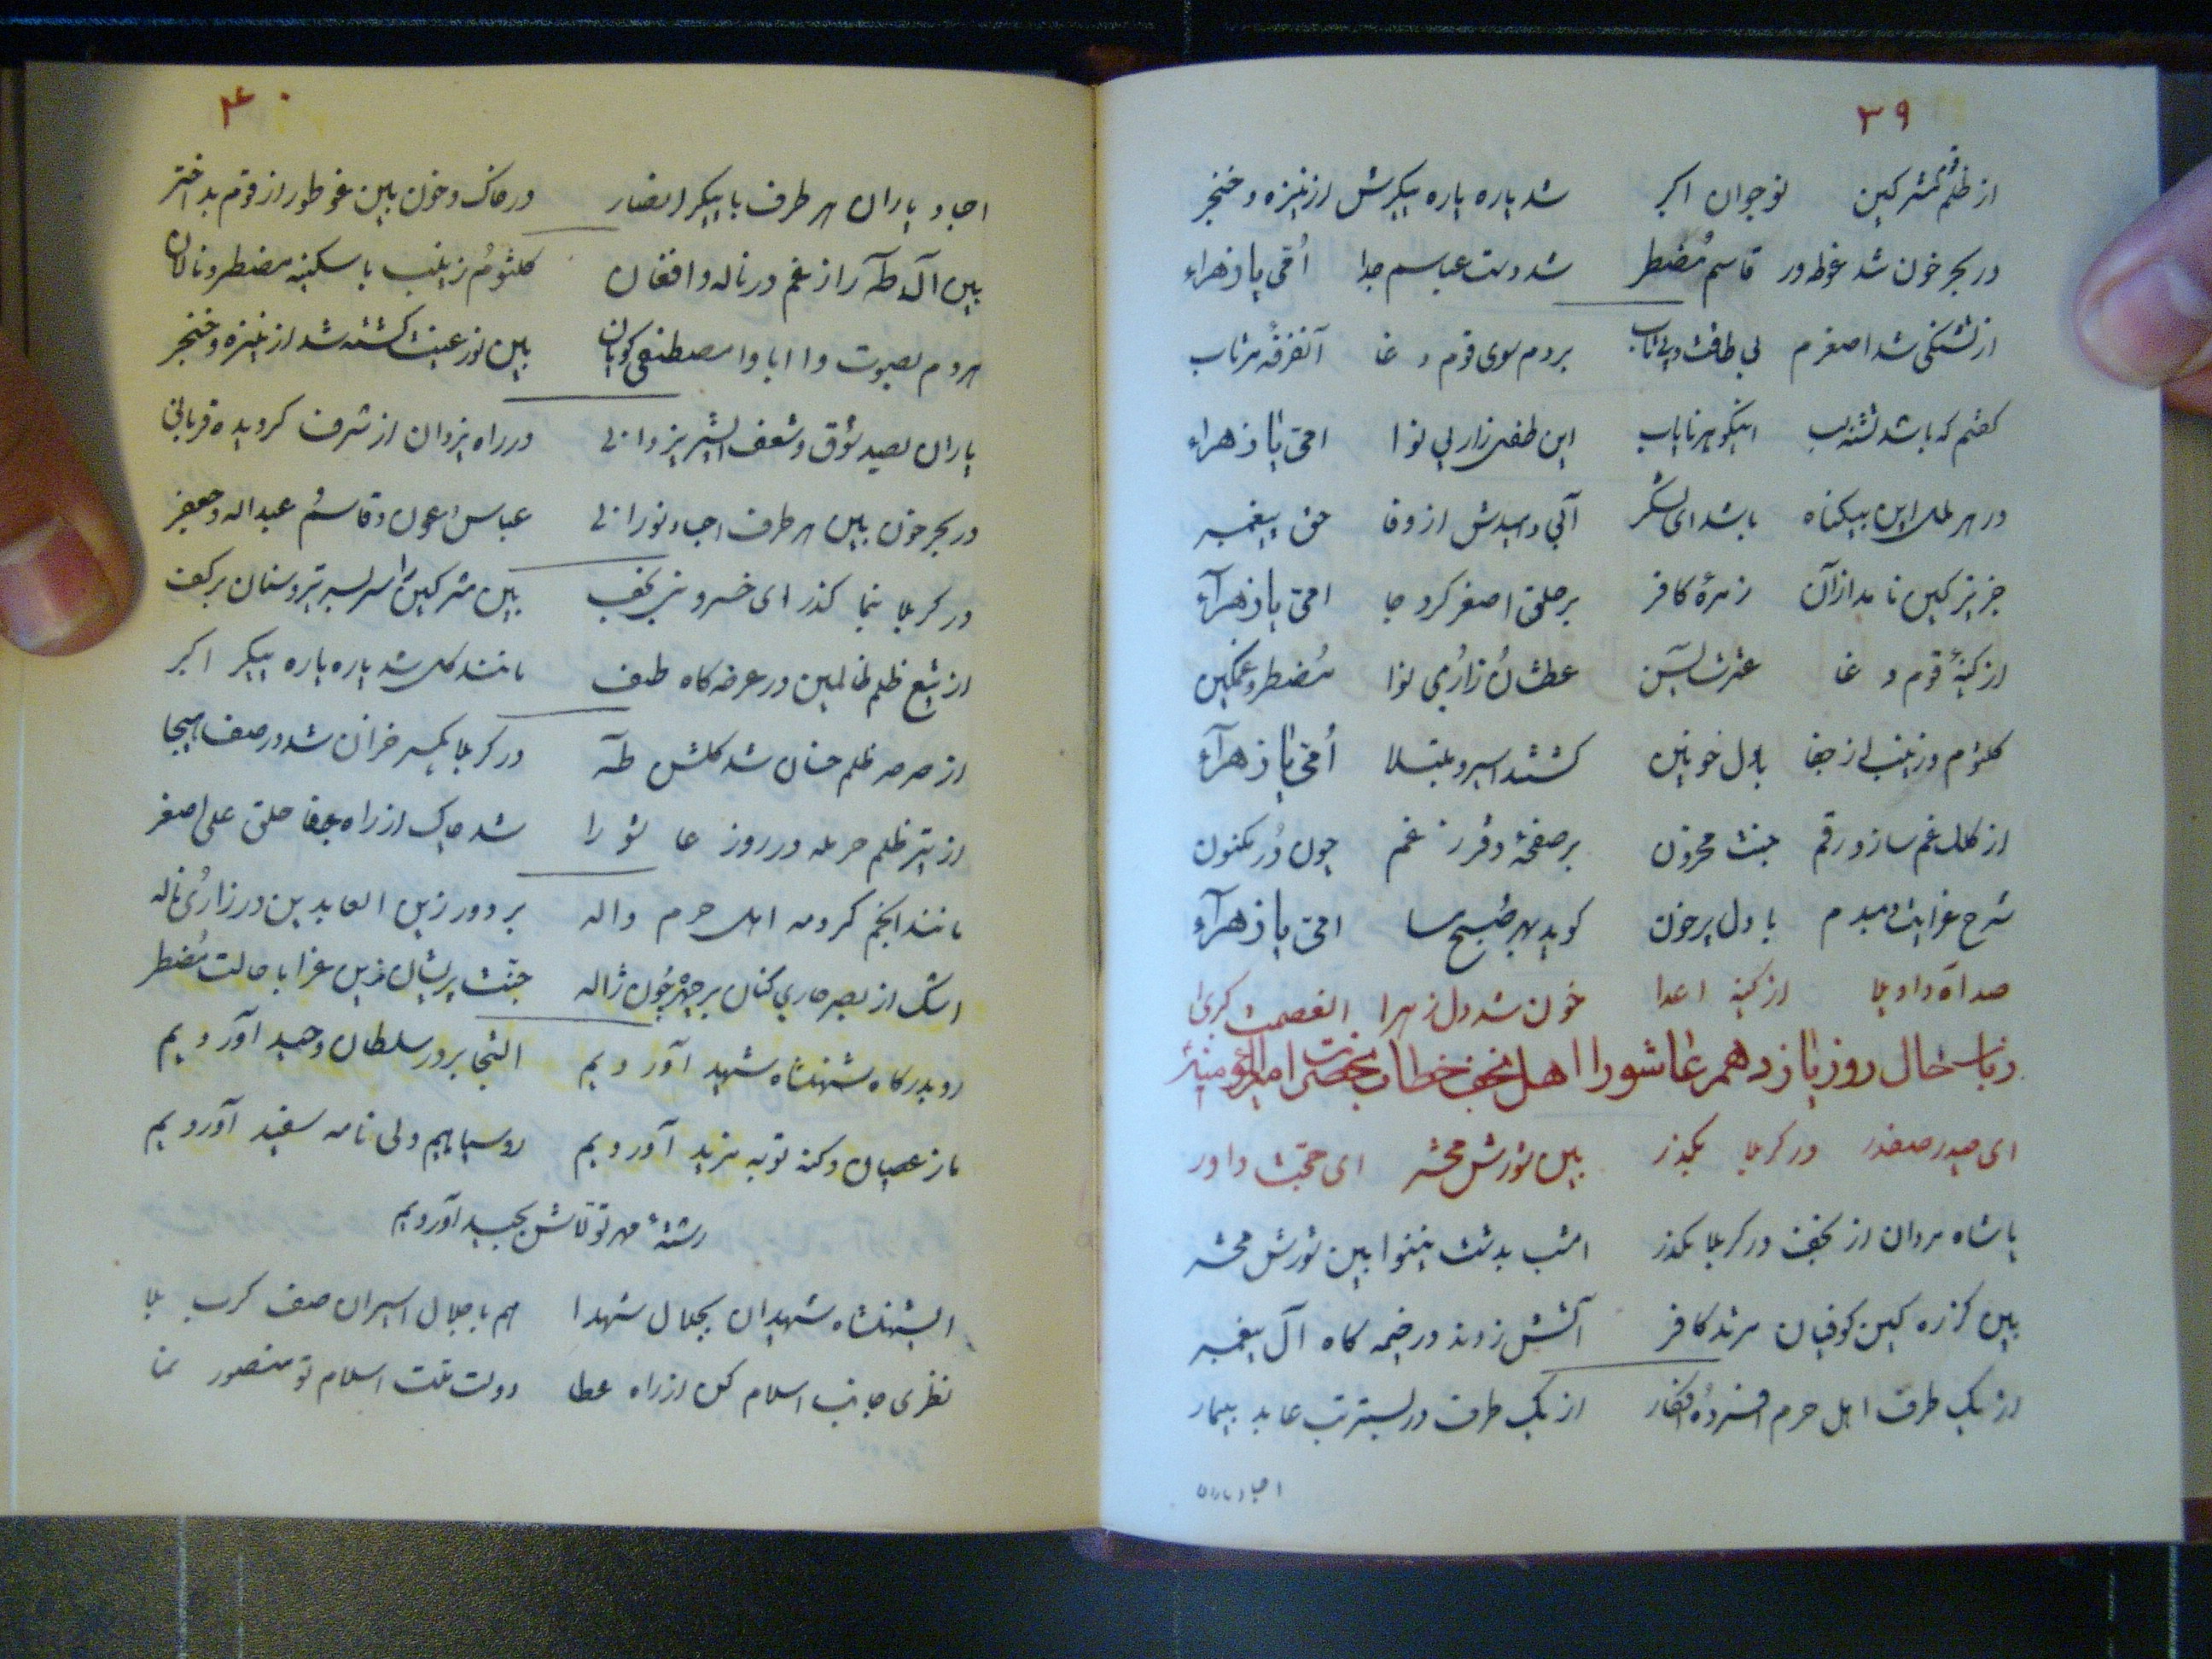 ۳۹
از ظلم قوم مشرکین نوجوان اکبر شد پاره پاره پیکرش از نیزه و خنجر
در بحر خون شد غوطه‌ور قاسم مُضطر شد دست عباسم جدا اُمّی یا زهراء
از تشنگی شد اصغرم بی طاقت و بی تاب بردم سوی قوم دغا آنغرقه
گفتم که باشد تشنه لب این طفل زار بی نوا امّی یا زهراء
در هر ملل این بیگناه باشد ای لشگر آبی دهیدش از وفا حق پیغمبر
جز تیر کین نامد از آن زمرهٔ کافر بر حلق اصغر کرد جا امّی یا زهرآء
از کینهٔ قوم دغا عترت یٰسین عطشان زار بی نوا مُضطر و غمگین
کلثوم و زینب از جفا با دل خونین گشتند اسیر و مبتلا اُمّی یا زهرآء
از کلک غم سازد رقم جنت محزون بر صفحهٔ دفتر ز غم چون دُر مکنون
شرح عزایت دمبدم با دل پر خون گوید بهر صبح و مسا امّی یا زهرآء
صد آه و واویلا از کینه اعدا خون شد دل زهرا العصمت کبری
زبانحال روز یازدهم عاشورا اهل نجف خطاب بحضرت امیرالمؤمنین
ای حیدر صفدر در کربلا بگذر ببین شورش محشر ای حجت داور
یا شاه مردان از نجف در کربلا بگذر امشب بدشت نینوا ببین شورش محشر
ببین کز ره کین کوفیان مرتد کافر آتش زدند در خیمه گاه آل پیغمبر
از یک طرف اهل حرم افسرده افکار از یک طرف در بستر تب عابد بیمار
اجساد یاران
۴۰
اجساد یاران هر طرف با پیکر انصار در خاک و خون ببین غوطه‌ور از قوم بد اختر
ببین آل طٰه را ز غم در ناله و افغان کلثوم زینب با سکینه مضطر و نالان
هر دم بصوت وا ابا وا مصطفی گویان ببین نور عینت کشته شد از نیزه و خنجر
یاران بصد شوق و شعف یزدانی در راه یزدان از شرف گردیده قربانی
در بحر خون ببین هر طرف اجساد نورانی عباس و عون و قاسم عبداله و جعفر
در کربلا بنما گذر ای خسرو نجف ببین مشرکین سراسر تیر و سنان بر کف
از تیغ ظلم ظالمین در عرصه گاه طف مانند گل شد پاره پاره پیکر اکبر
از صرصر ظلم خسان شد گلشن طٰه در کربلا یکسر خزان شد در صف هیجا
از تیر ظلم حرمله در روز عاشورا شد چاک از راه جفا حلق علی اصغر
مانند انجم گرد مه اهل حرم واله بر دور زین العابدین در زاری ناله
اشک از بصر جاری کنان بر چهر چون ژاله جنت پریشان زین عزا با حالت مُضطر
رو بدرگاه شهنشاه شهید آوردیم التجا بر در سلطان وحید آوردیم
ما ز عصیان و گنه توبه مزید آوردیم رو سیاهیم ولی نامه سفید آوردیم
رشتهٔ مهر تو تا آوردیم
ای شهنشاه شهیدان بجلال شهدا هم باجلال اسیران صف کرب بلا
نظری جانب اسلام کن از راه عطا دولت ملت اسلام تو منصور نما